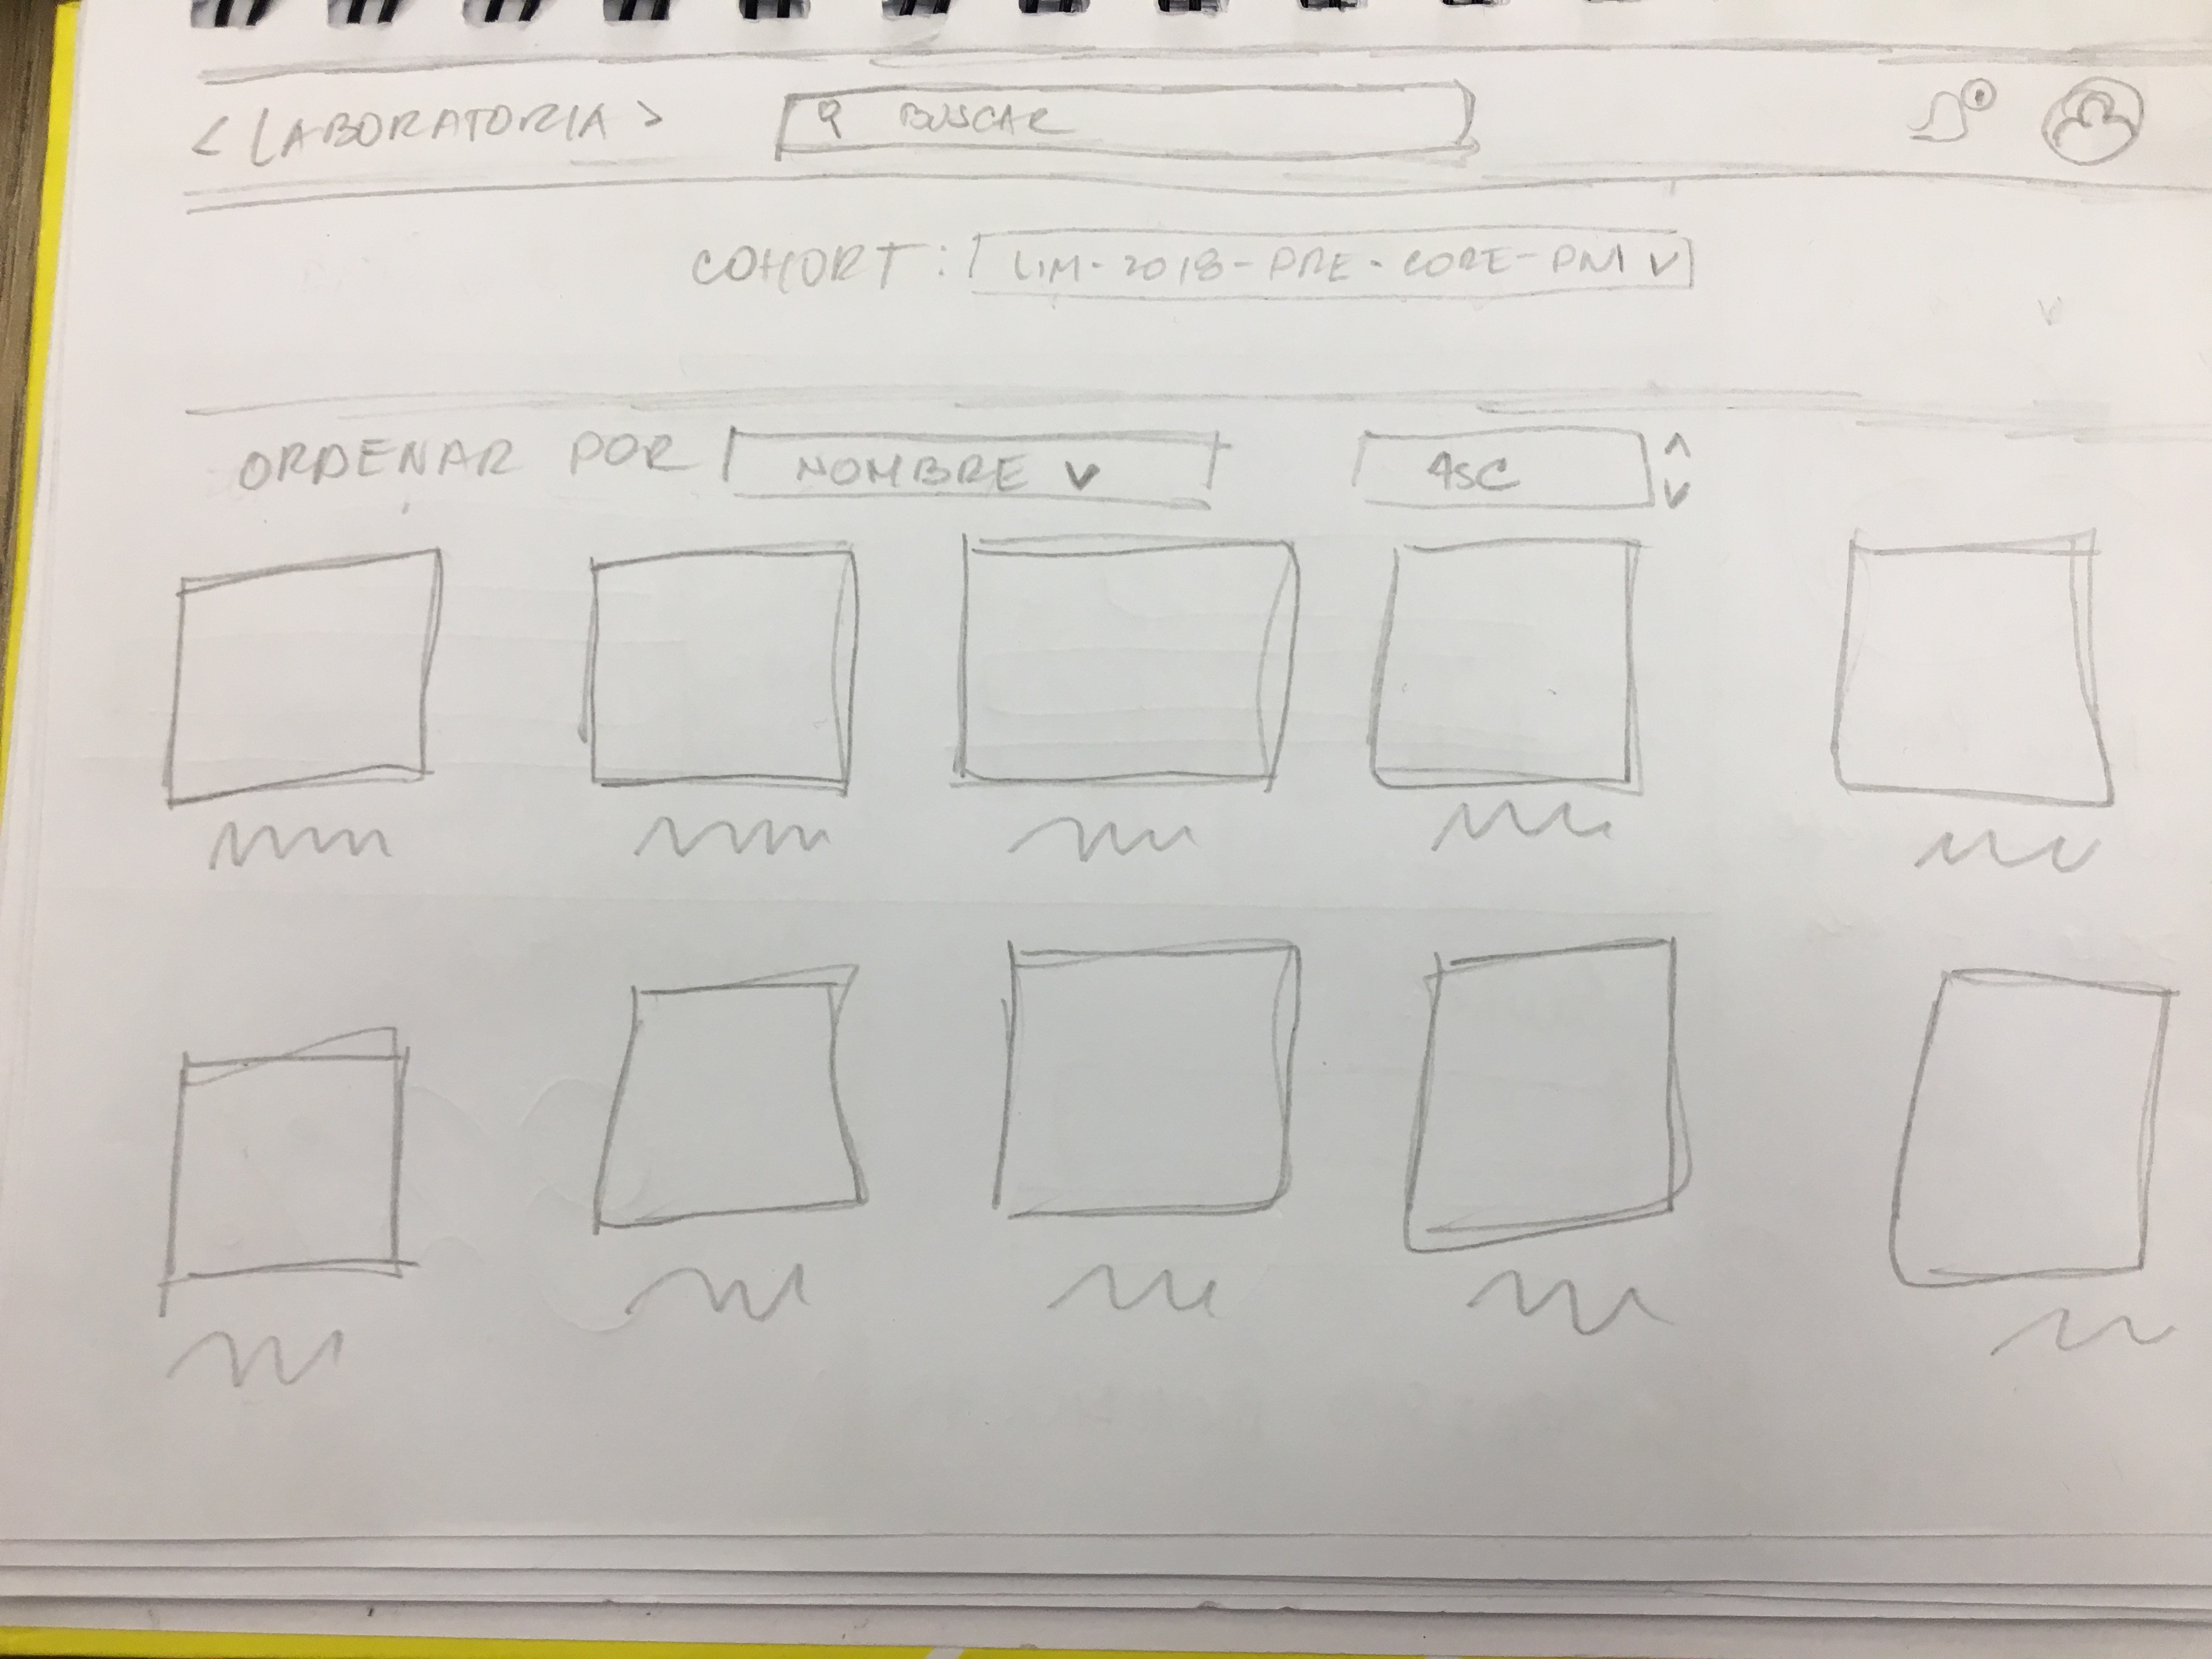 < LABORATORIA > BUSCAR
COHORT: LIM-2018-PRE-CORE-PM V
ORDENAR POR NOMBRE V ASC